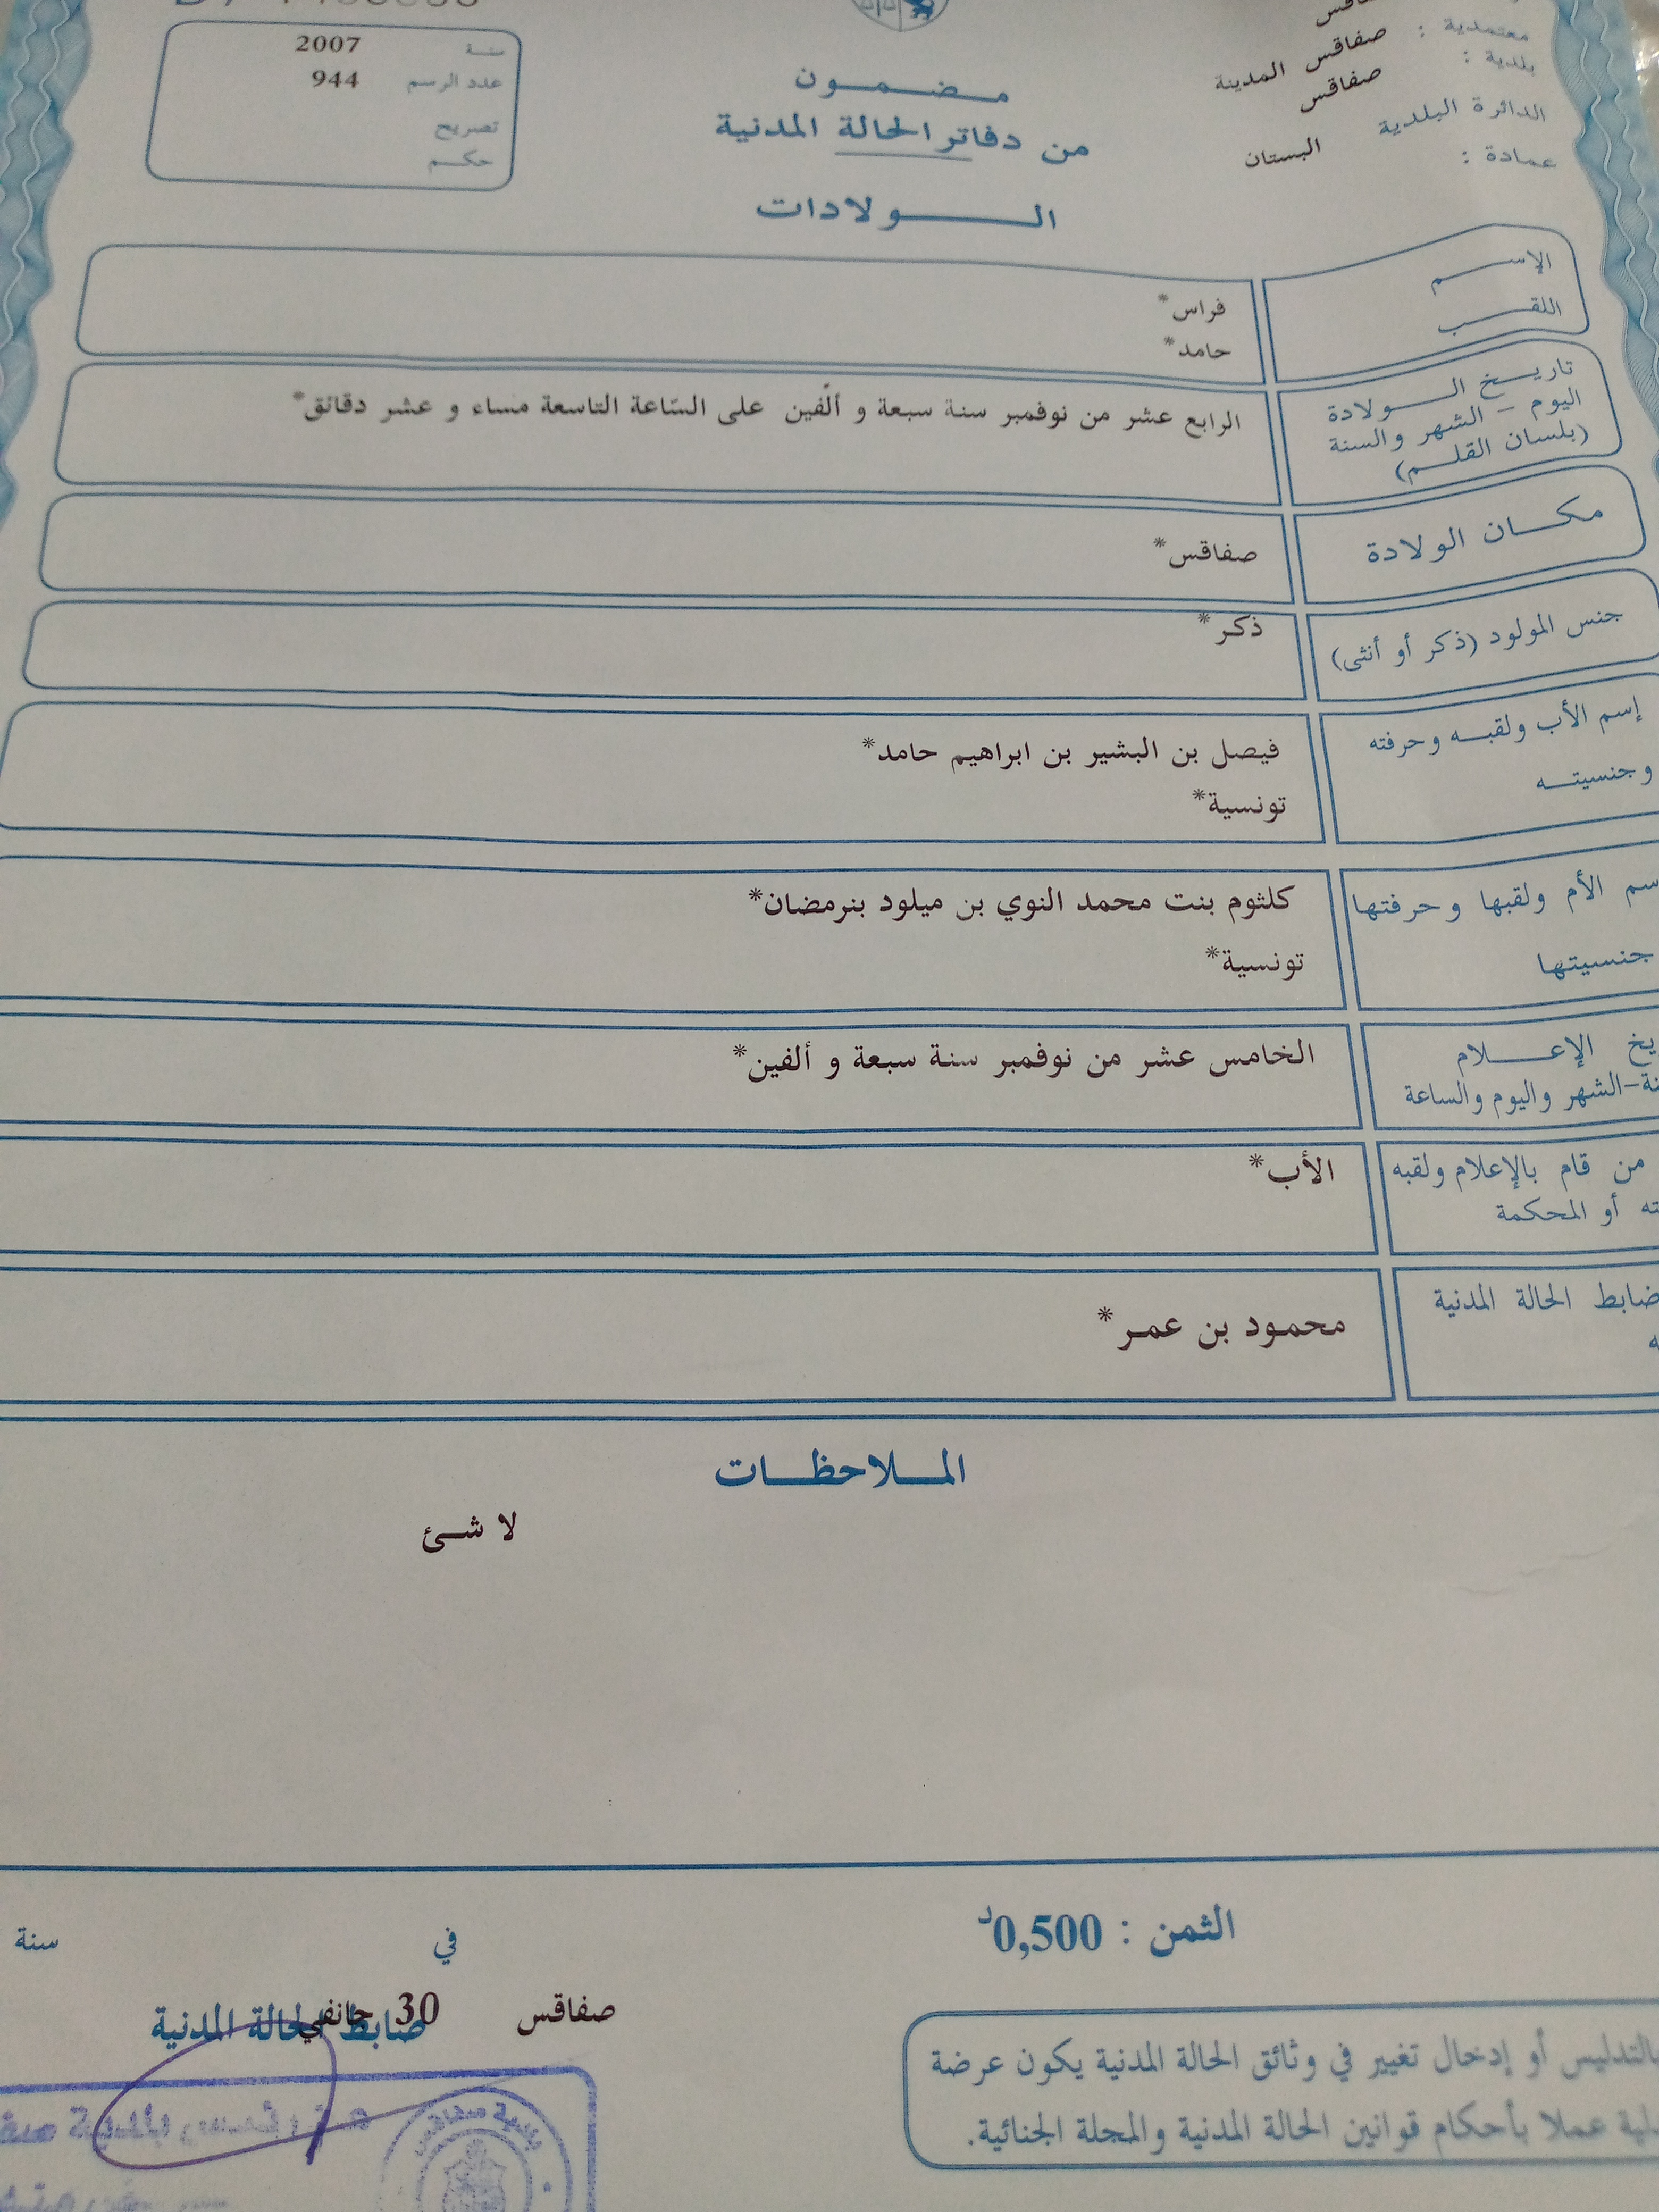 صفاقس
معتمدية : صفاقس المدينة
بلدية : صفاقس
الدائرة البلدية
عمادة : البستان
مضمون
من دفاتر الحالة المدنية
الولادات
سنة 2007
عدد الرسم 944
تصريح
حكم
الإسم فراس*
اللقب حامد*
تاريخ الولادة
اليوم - الشهر والسنة
(بلسان القلم)
الرابع عشر من نوفمبر سنة سبعة و ألفين على السّاعة التاسعة مساء و عشر دقائق*
مكان الولادة صفاقس*
جنس المولود (ذكر أو أنثى) ذكر*
إسم الأب ولقبه وحرفته
وجنسيته
فيصل بن البشير بن ابراهيم حامد*
تونسية*
سم الأم ولقبها وحرفتها
جنسيتها
كلثوم بنت محمد النوي بن ميلود بنرمضان*
تونسية*
يخ الإعلام
نة-الشهر واليوم والساعة
الخامس عشر من نوفمبر سنة سبعة و ألفين*
من قام بالإعلام ولقبه
ته أو المحكمة
الأب*
ضابط الحالة المدنية
ه
محمود بن عمر*
الملاحظات
لا شئ
الثمن : 0,500د
في
سنة
صفاقس 30 جانفي
ضابط الحالة المدنية
بالتدليس أو إدخال تغيير في وثائق الحالة المدنية يكون عرضة
لية عملا بأحكام قوانين الحالة المدنية والمجلة الجنائية.